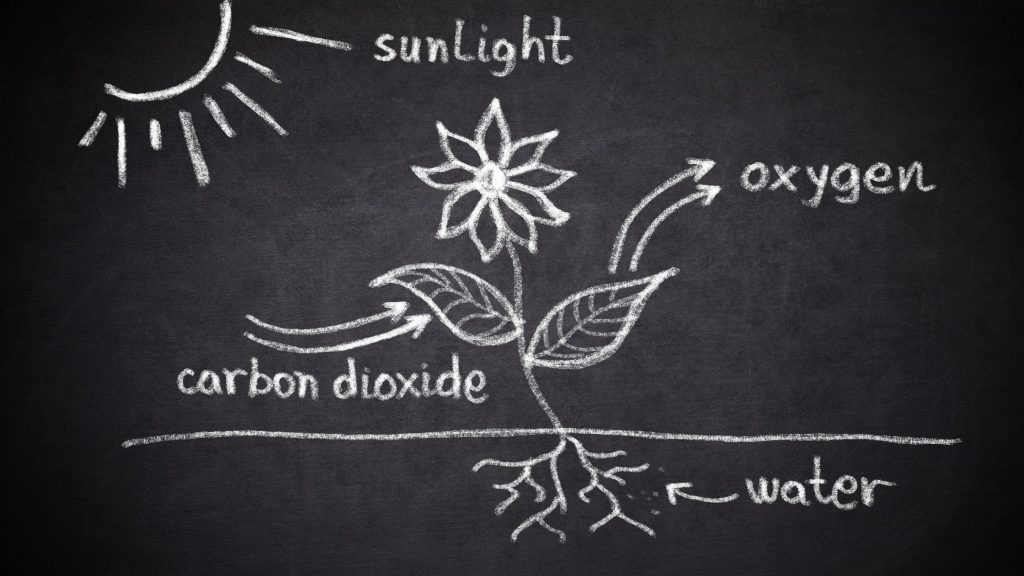 sunlight
oxygen
carbon dioxide
water